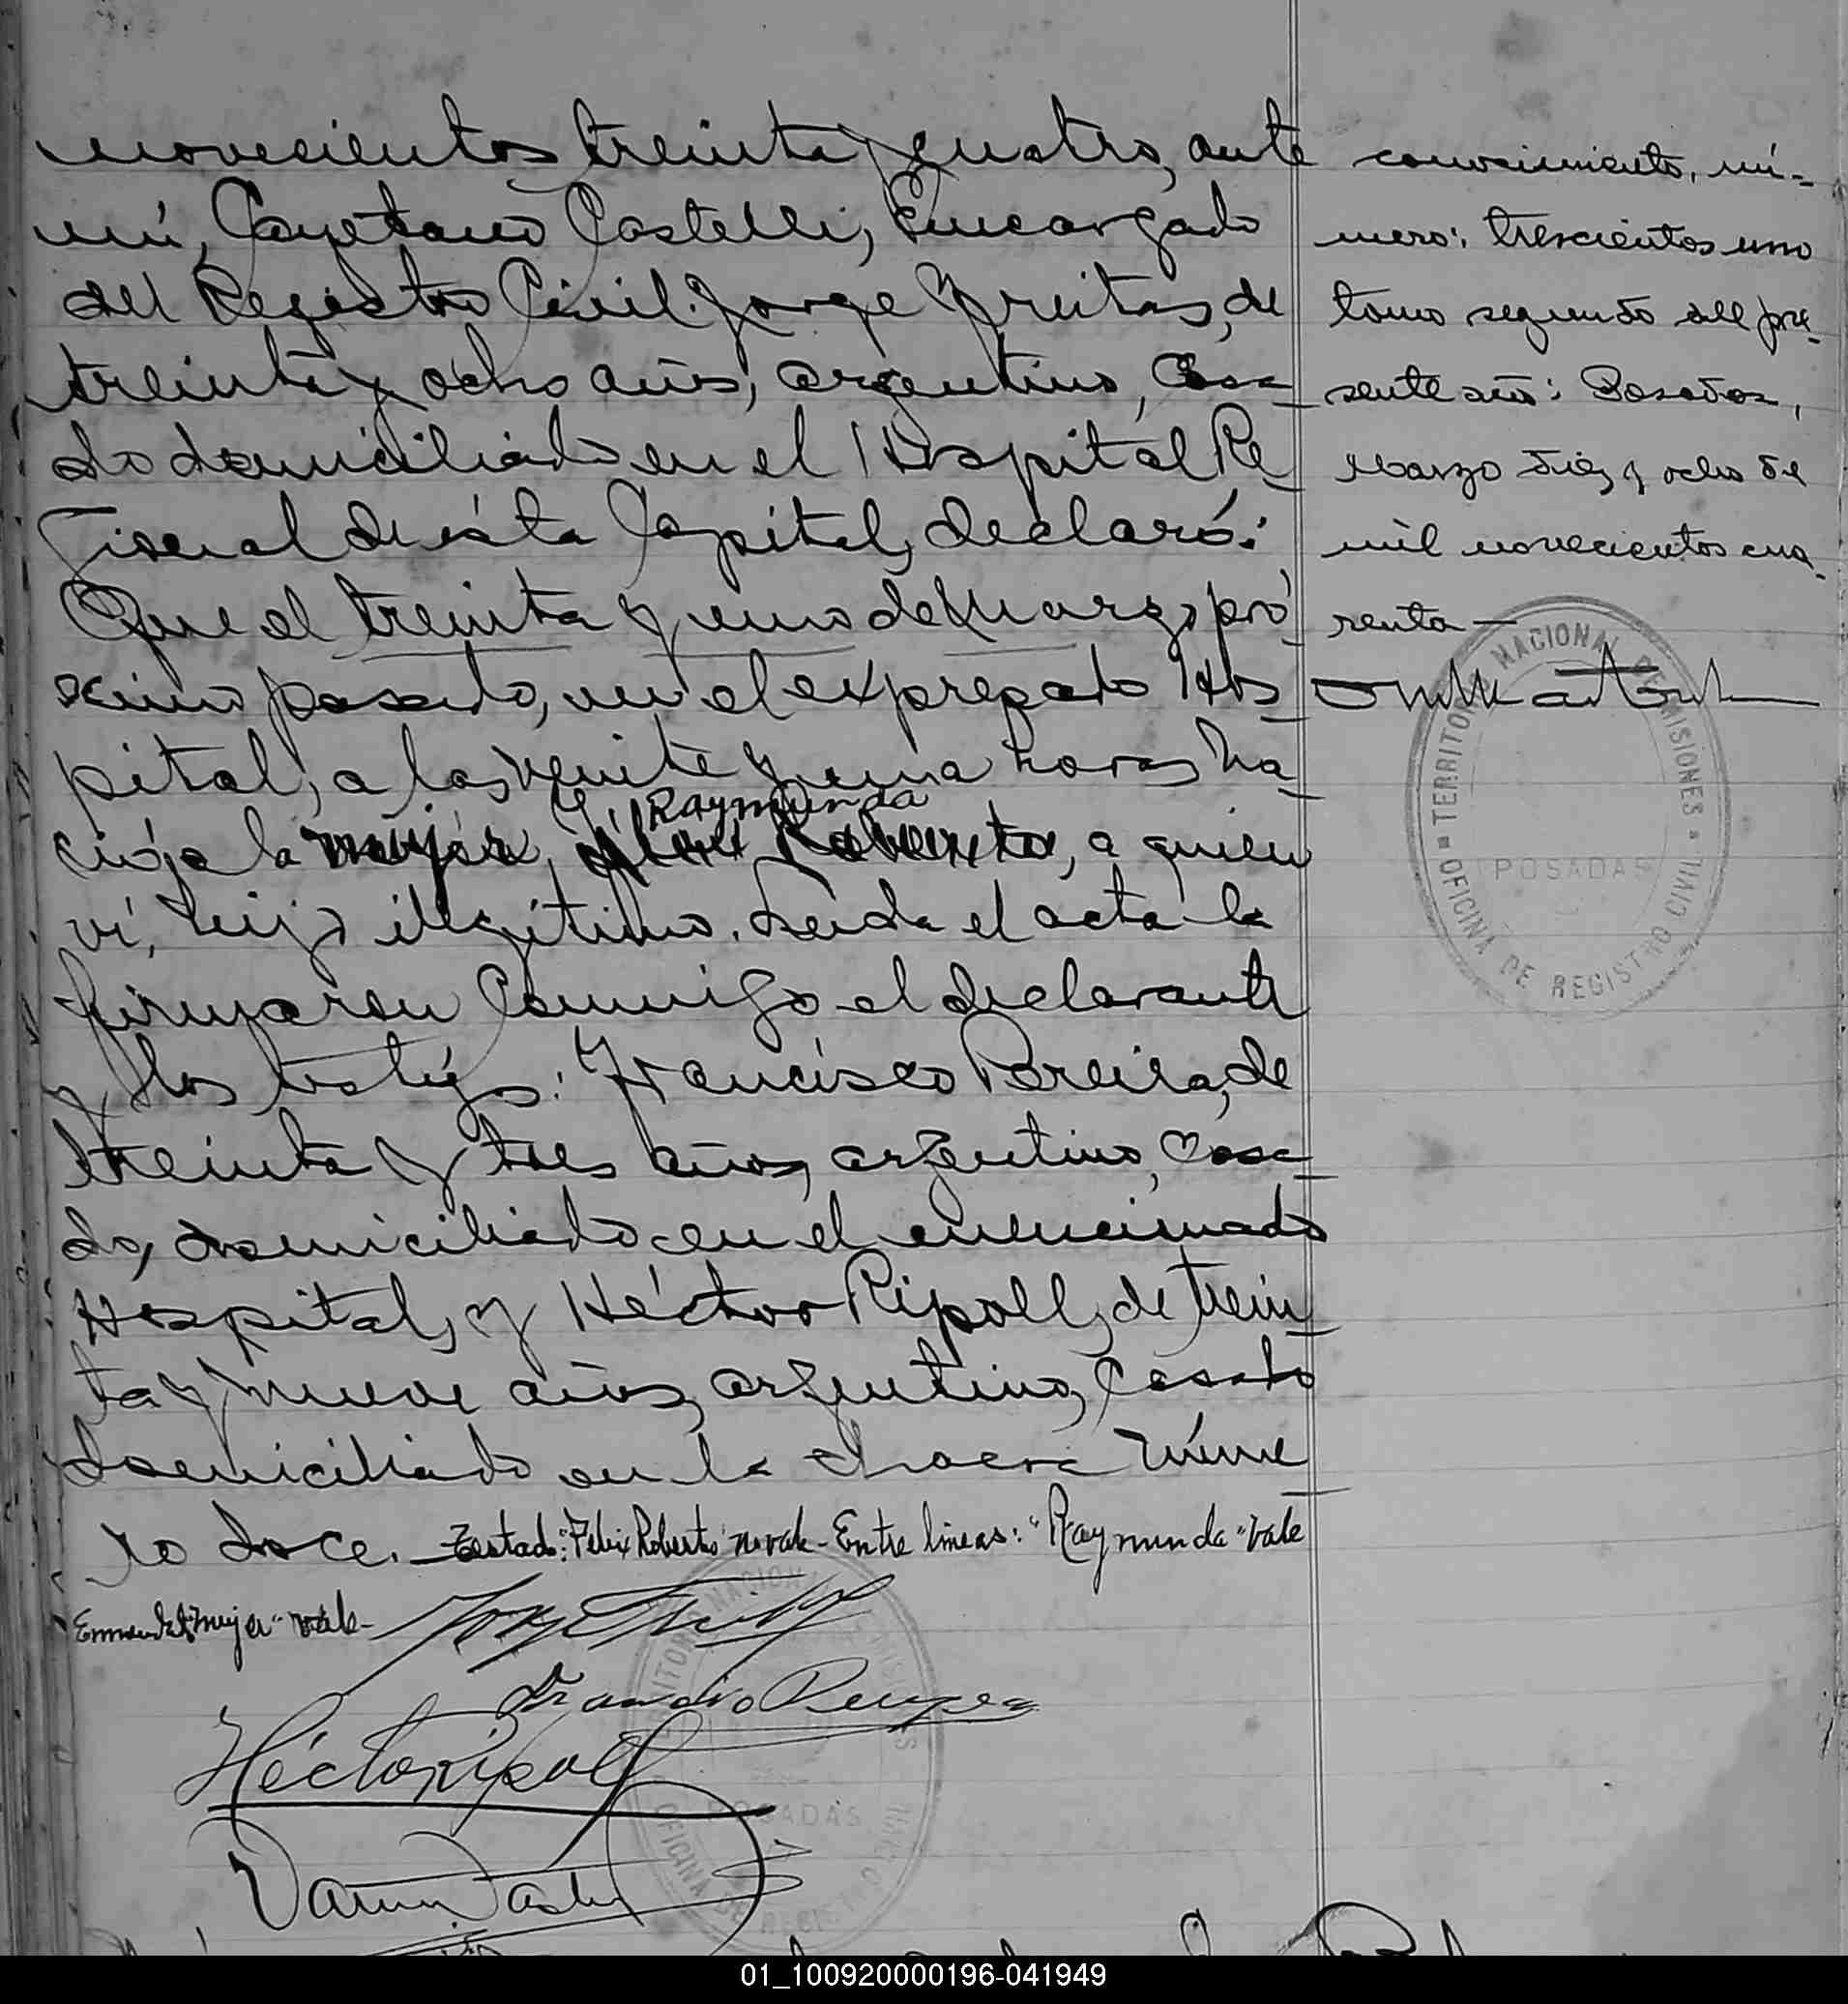 novecientos treinta y cuatro, ante
mí, Cayetano Castelli, Encargado
del Registro Civil. Jorge Freitas, de
treinta y ocho años, argentino, casa-
do domiciliado en el Hospital Re-
gional de ésta Capital, declaró:
Que el treinta y uno de Marzo pró-
ximo pasado, en el expresado Hos-
pital, a las veinte y una horas na-
Raymunda
ció, la mujer, Félix Roberto, a quien
ví, hijo ilegítimo. Leída el acta la
firmaron conmigo el declarante
y los testigos: Francisco Pereira, de
treinta y tres años, argentino, casa-
do, domiciliado en el
Hospital, y Héctor Ripoll, de trein-
ta y nueve años, argentino, casado
domiciliado en la chacra núme
ro doce. Testado: "Felix Roberto" no vale - Entre lineas: "Raymunda" Vale
Enmendado "mujer" vale-
Héctor Ripoll
conocimiento, nú-
mero: trescientos uno
tomo segundo del pre-
sente año: Posadas,
Marzo diez y ocho de
mil novecientos cua-
renta —
TERRITORIO NACIONAL DE MISIONES
POSADAS
OFICINA DE REGISTRO CIVIL
POSADAS
01_100920000196-041949